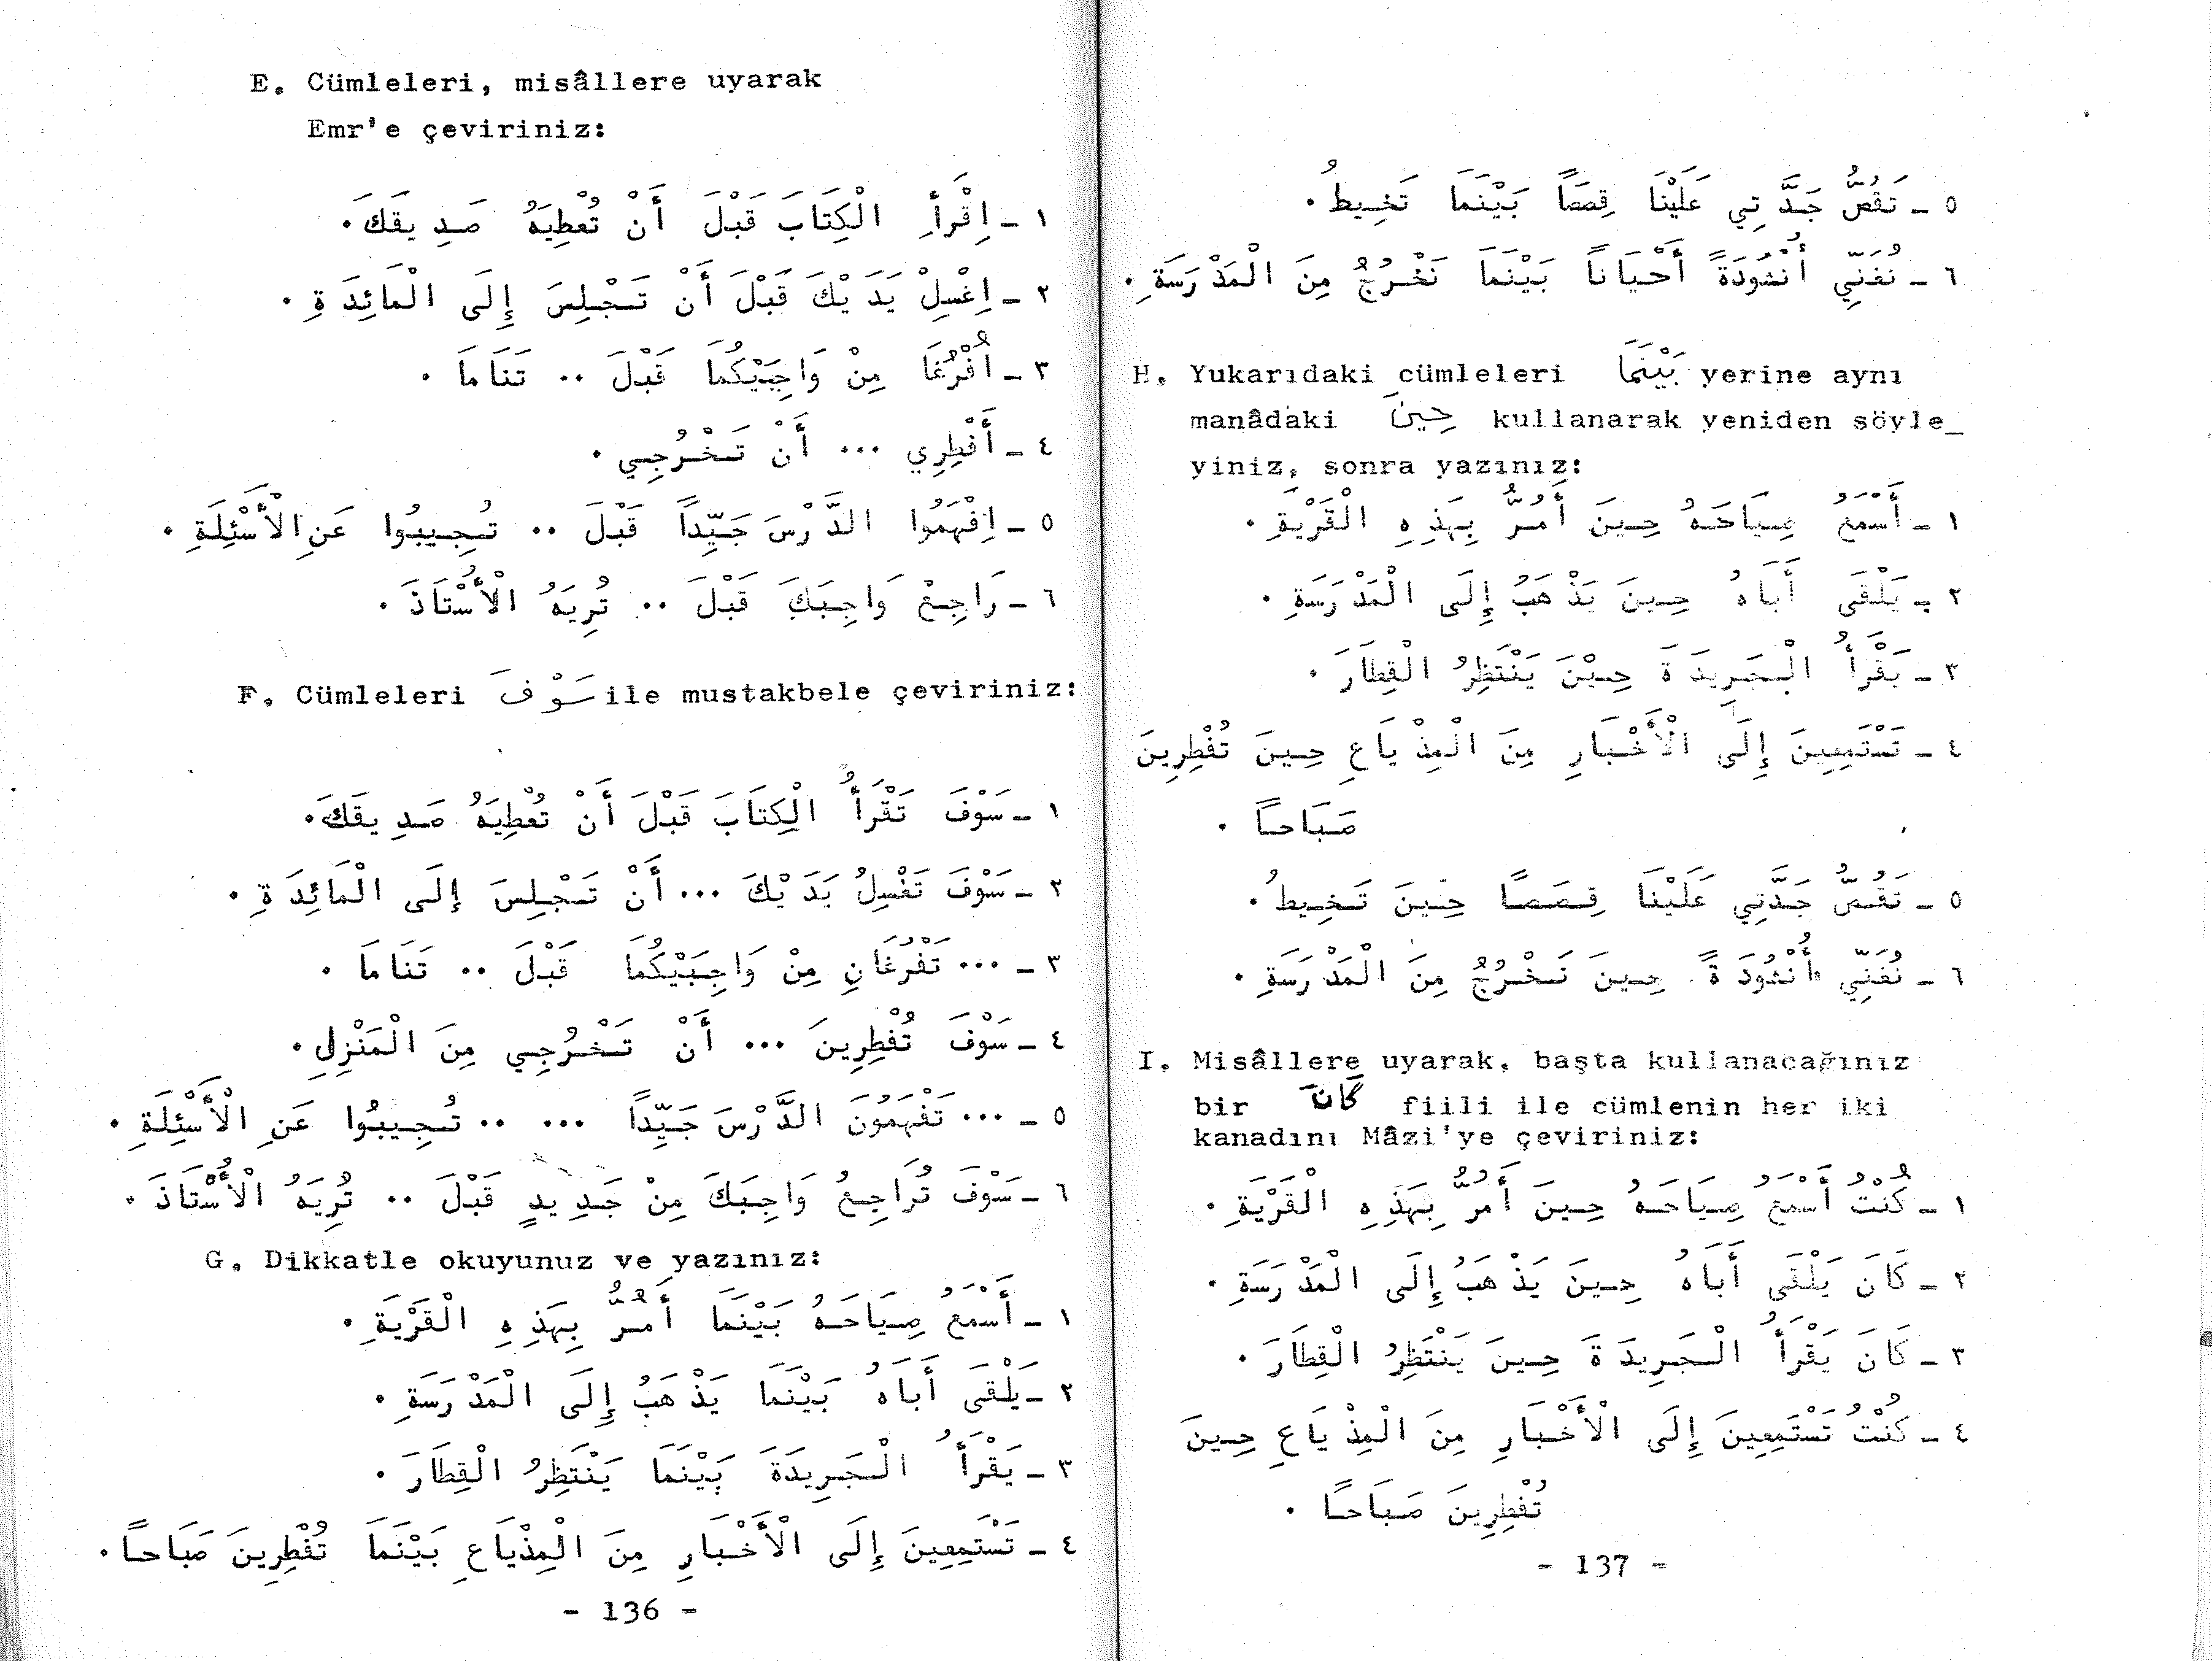 E. Cümleleri, misâllere uyarak
Emr'e çeviriniz:
١ - اِقْرَأِ الْكِتَابَ قَبْلَ أَنْ تُعْطِيَهُ صَدِيقَكَ.
٢ - اِغْسِلْ يَدَيْكَ قَبْلَ أَنْ تَجْلِسَ إِلَى الْمَائِدَةِ.
٣ - اُفْرُغَا مِنْ وَاجِبَيْكُمَا قَبْلَ .. تَنَامَا.
٤ - أَفْطِرِي ... أَنْ تَخْرُجِي.
٥ - اِفْهَمُوا الدَّرْسَ جَيِّداً قَبْلَ .. تُجِيبُوا عَنِ الْأَسْئِلَةِ.
٦ - رَاجِعْ وَاجِبَكَ قَبْلَ .. تُرِيَهُ الْأُسْتَاذَ.
F. Cümleleri سَوْفَ ile mustakbele çeviriniz:
١ - سَوْفَ تَقْرَأُ الْكِتَابَ قَبْلَ أَنْ تُعْطِيَهُ صَدِيقَكَ.
٢ - سَوْفَ تَغْسِلُ يَدَيْكَ ... أَنْ تَجْلِسَ إِلَى الْمَائِدَةِ.
٣ - ... تَفْرُغَانِ مِنْ وَاجِبَيْكُمَا قَبْلَ .. تَنَامَا.
٤ - سَوْفَ تُفْطِرِينَ ... أَنْ تَخْرُجِي مِنَ الْمَنْزِلِ.
٥ - ... تَفْهَمُونَ الدَّرْسَ جَيِّداً ... .. تُجِيبُوا عَنِ الْأَسْئِلَةِ.
٦ - سَوْفَ تُرَاجِعُ وَاجِبَكَ مِنْ جَدِيدٍ قَبْلَ .. تُرِيَهُ الْأُسْتَاذَ.
G. Dikkatle okuyunuz ve yazınız:
١ - أَسْمَعُ صِيَاحَهُ بَيْنَمَا أَمُرُّ بِهَذِهِ الْقَرْيَةِ.
٢ - يَلْقَى أَبَاهُ بَيْنَمَا يَذْهَبُ إِلَى الْمَدْرَسَةِ.
٣ - يَقْرَأُ الْجَرِيدَةَ بَيْنَمَا يَنْتَظِرُ الْقِطَارَ.
٤ - تَسْتَمِعِينَ إِلَى الْأَخْبَارِ مِنَ الْمِذْيَاعِ بَيْنَمَا تُفْطِرِينَ صَبَاحاً.
- 136 -
٥ - تَقُصُّ جَدَّتِي عَلَيْنَا قِصَصاً بَيْنَمَا تَخِيطُ.
٦ - نُغَنِّي أُنْشُودَةً أَحْيَاناً بَيْنَمَا نَخْرُجُ مِنَ الْمَدْرَسَةِ.
H. Yukarıdaki cümleleri بَيْنَمَا yerine aynı
manâdaki حِينَ kullanarak yeniden söyle_
yiniz, sonra yazınız:
١ - أَسْمَعُ صِيَاحَهُ حِينَ أَمُرُّ بِهَذِهِ الْقَرْيَةِ.
٢ - يَلْقَى أَبَاهُ حِينَ يَذْهَبُ إِلَى الْمَدْرَسَةِ.
٣ - يَقْرَأُ الْجَرِيدَةَ حِيْنَ يَنْتَظِرُ الْقِطَارَ.
٤ - تَسْتَمِعِينَ إِلَى الْأَخْبَارِ مِنَ الْمِذْيَاعِ حِينَ تُفْطِرِينَ
صَبَاحاً.
٥ - تَقُصُّ جَدَّتِي عَلَيْنَا قِصَصًا حِينَ تَخِيطُ.
٦ - نُغَنِّي أُنْشُودَةً حِينَ نَخْرُجُ مِنَ الْمَدْرَسَةِ.
I. Misâllere uyarak, başta kullanacağınız
bir كَانَ fiili ile cümlenin her iki
kanadını Mâzi'ye çeviriniz:
١ - كُنْتُ أَسْمَعُ صِيَاحَهُ حِينَ أَمُرُّ بِهَذِهِ الْقَرْيَةِ.
٢ - كَانَ يَلْقَى أَبَاهُ حِينَ يَذْهَبُ إِلَى الْمَدْرَسَةِ.
٣ - كَانَ يَقْرَأُ الْجَرِيدَةَ حِينَ يَنْتَظِرُ الْقِطَارَ.
٤ - كُنْتُ تَسْتَمِعِينَ إِلَى الْأَخْبَارِ مِنَ الْمِذْيَاعِ حِينَ
تُفْطِرِينَ صَبَاحًا.
- 137 -